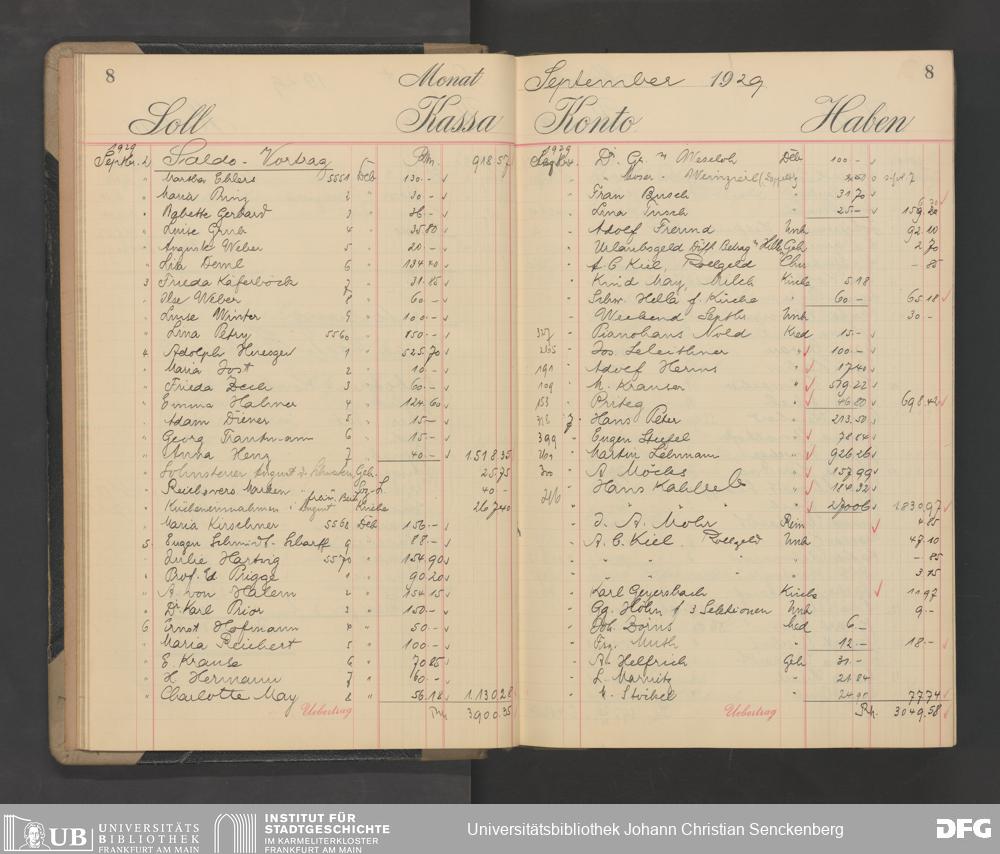 8
Monat
Soll
Kassa
1929
Septbr. 2 Saldo-Vortrag Rm. 918.57
" Martha Ehlers 5551 Deb 130.-
" Maria Ring 2 " 30.-
" Babette Gerhard 3 " 36.-
" Luise Grub 4 " 35.80
" Auguste Weber 5 " 20.-
" Lila Deml 6 " 134.40
3 Frieda Käferböck 7 " 31.85
" Ilse Weber 8 " 60.-
" Luise Winter 9 " 100.-
" Lina Petry 5560 " 150.-
4 Adolph 1 " 525.70
" Maria Jost 2 " 10.-
" Frieda 3 " 60.-
" Emma Hahner 4 " 124.60
" Adam Diener 5 " 15.-
" Georg Trautmann 6 " 15.-
" Anna Henz 7 " 40.- 1518.35
" August Geh. 25.75
" Reichsvers. Marken 40.-
" Kücheneinnahmen i. August Küche 267.40
" Maria Kirschner 5568 Deb 156.-
5 Eugen Schmidt-Scharff 9 " 88.-
" Julie Hartwig 5570 " 154.90
" Prof. Ed Prigge " 90.20
" A. von Halem 2 " 154.15
" Dr. Karl Prior 3 " 150.-
6 Ernst Hofmann 4 " 50.-
" Maria Reichert 5 " 100.-
" E. Krause 6 " 70.85
" H. Hermann 7 " 60.-
" Charlotte May 8 " 56.18 1130.28
Uebertrag Rm 3900.35
8
September 1929
Konto
Haben
1929
Septbr. Dr. Deb 100.-
" Fran Busch " 31.70
" Lina " 25.- 159.20
" Adolf Freund Unk 92.10
" Urlaubsgeld Diff. Betrag Geh 2.70
" A. C Kiel, Rollgeld -.85
" Knid May, Milch Küche 5.18
" Schw. Hella f. Küche " 60.- 65.18
" Weekend Septbr Unk 30.-
327 " Pianohaus Nold Kred 15.-
" Jos. " 100.-
191 " Adolf Harms " 17.40
109 " M. Kramer " 519.22
153 " Priteg " 46.80 698.42
" Hans Peter " 213.50
399 " Eugen Stiefel " 78.84
" Martin Lehmann " 926.26
" A. Möckes " 157.99
" Hans " 184.32
" " " " " 270.06 1830.97
" J. A. Mohr Rein 4.85
" A. C. Kiel Rollgeld Unk 47.10
" " " " " -.85
" " " " " 3.15
" Karl Geyersbach Küche 11.97
" Gg. Hohn f 3 Sektionen Unk 9.-
" Joh. Dorns Med 6.-
" Muth " 12.- 18.-
" A. Helfrich Geh 31.-
" L. " 21.84
" " 24.90 77.74
Uebertrag Rm. 3049.58
UB UNIVERSITÄTS
BIBLIOTHEK
FRANKFURT AM MAIN
INSTITUT FÜR
STADTGESCHICHTE
IM KARMELITERKLOSTER
FRANKFURT AM MAIN
Universitätsbibliothek Johann Christian Senckenberg
DFG